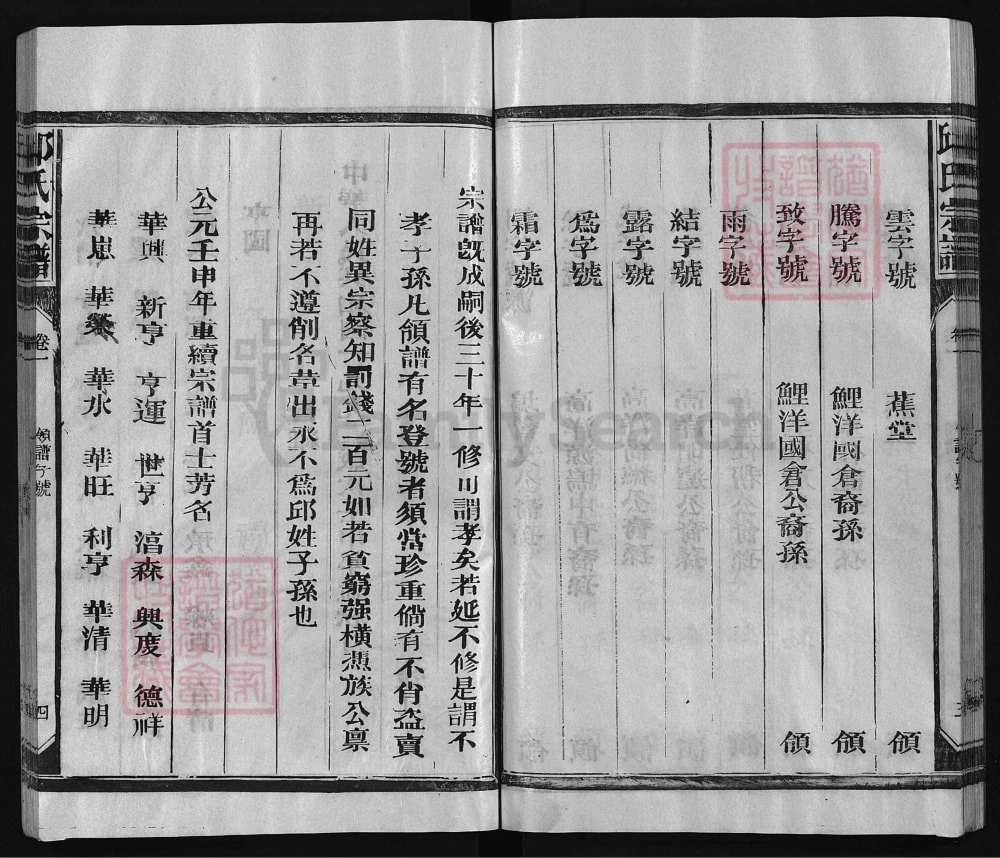 雲字號 蕉堂 領
騰字號 鯉洋國倉公裔孫 領
致字號 鯉洋國倉公裔孫 領
雨字號
結字號
露字號
爲字號
霜字號
宗譜旣成嗣後三十年一修可謂孝矣若延不修是謂不
孝子孫凡領譜有名登號者須當珍重倘有不肖盜賣
同姓異宗察知罰錢二百元如若貧窮强橫憑族公稟
再若不遵削名革出永不爲邱姓子孫也
公元壬申年重續宗譜首士芳名
華興 新亨 亨運 世亨 涫森 興度 德祥
華崽 華榮 華水 華旺 利亨 華清 華明
邱氏宗譜 卷一 領譜字號 四
FamilySearch